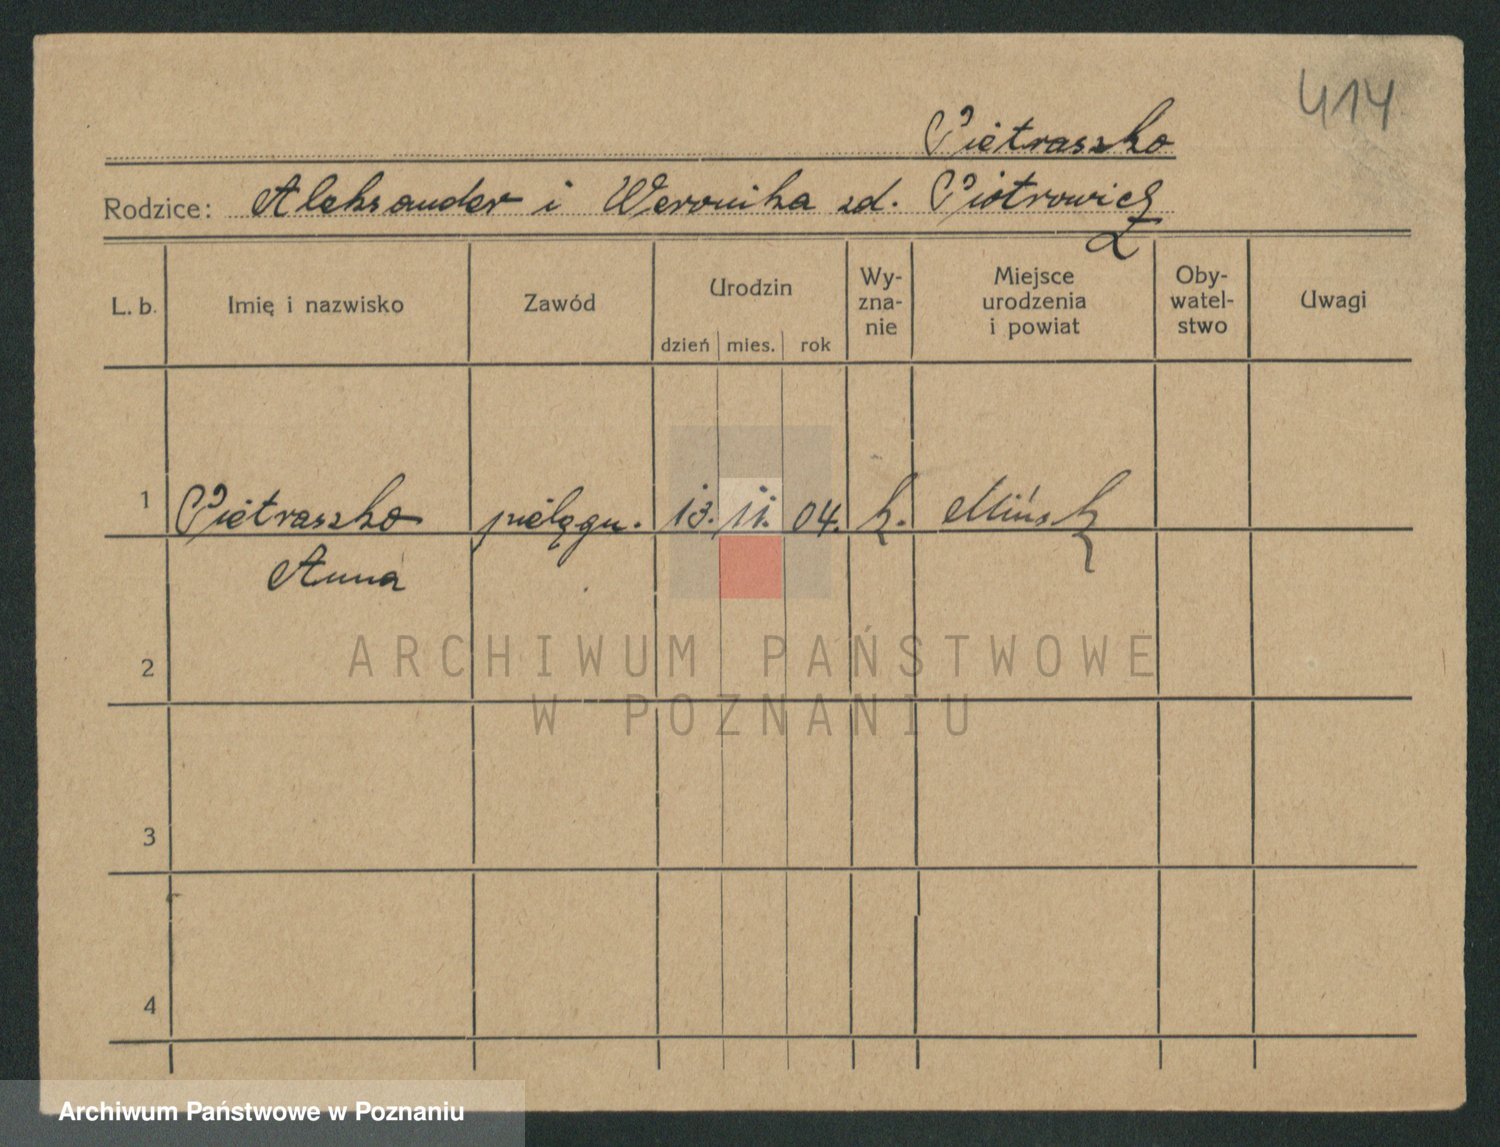 414
Pietraszko
Rodzice: Aleksander i Weronika zd. Piotrowicz
L. b. Imię i nazwisko Zawód Urodzin dzień mies. rok Wy-zna-nie Miejsce urodzenia i powiat Oby-watel-stwo Uwagi
1 Pietraszko pielęgn. 13. 11. 04. k. Mińsk
Anna
2
3
4
ARCHIWUM PAŃSTWOWE
W POZNANIU
Archiwum Państwowe w Poznaniu